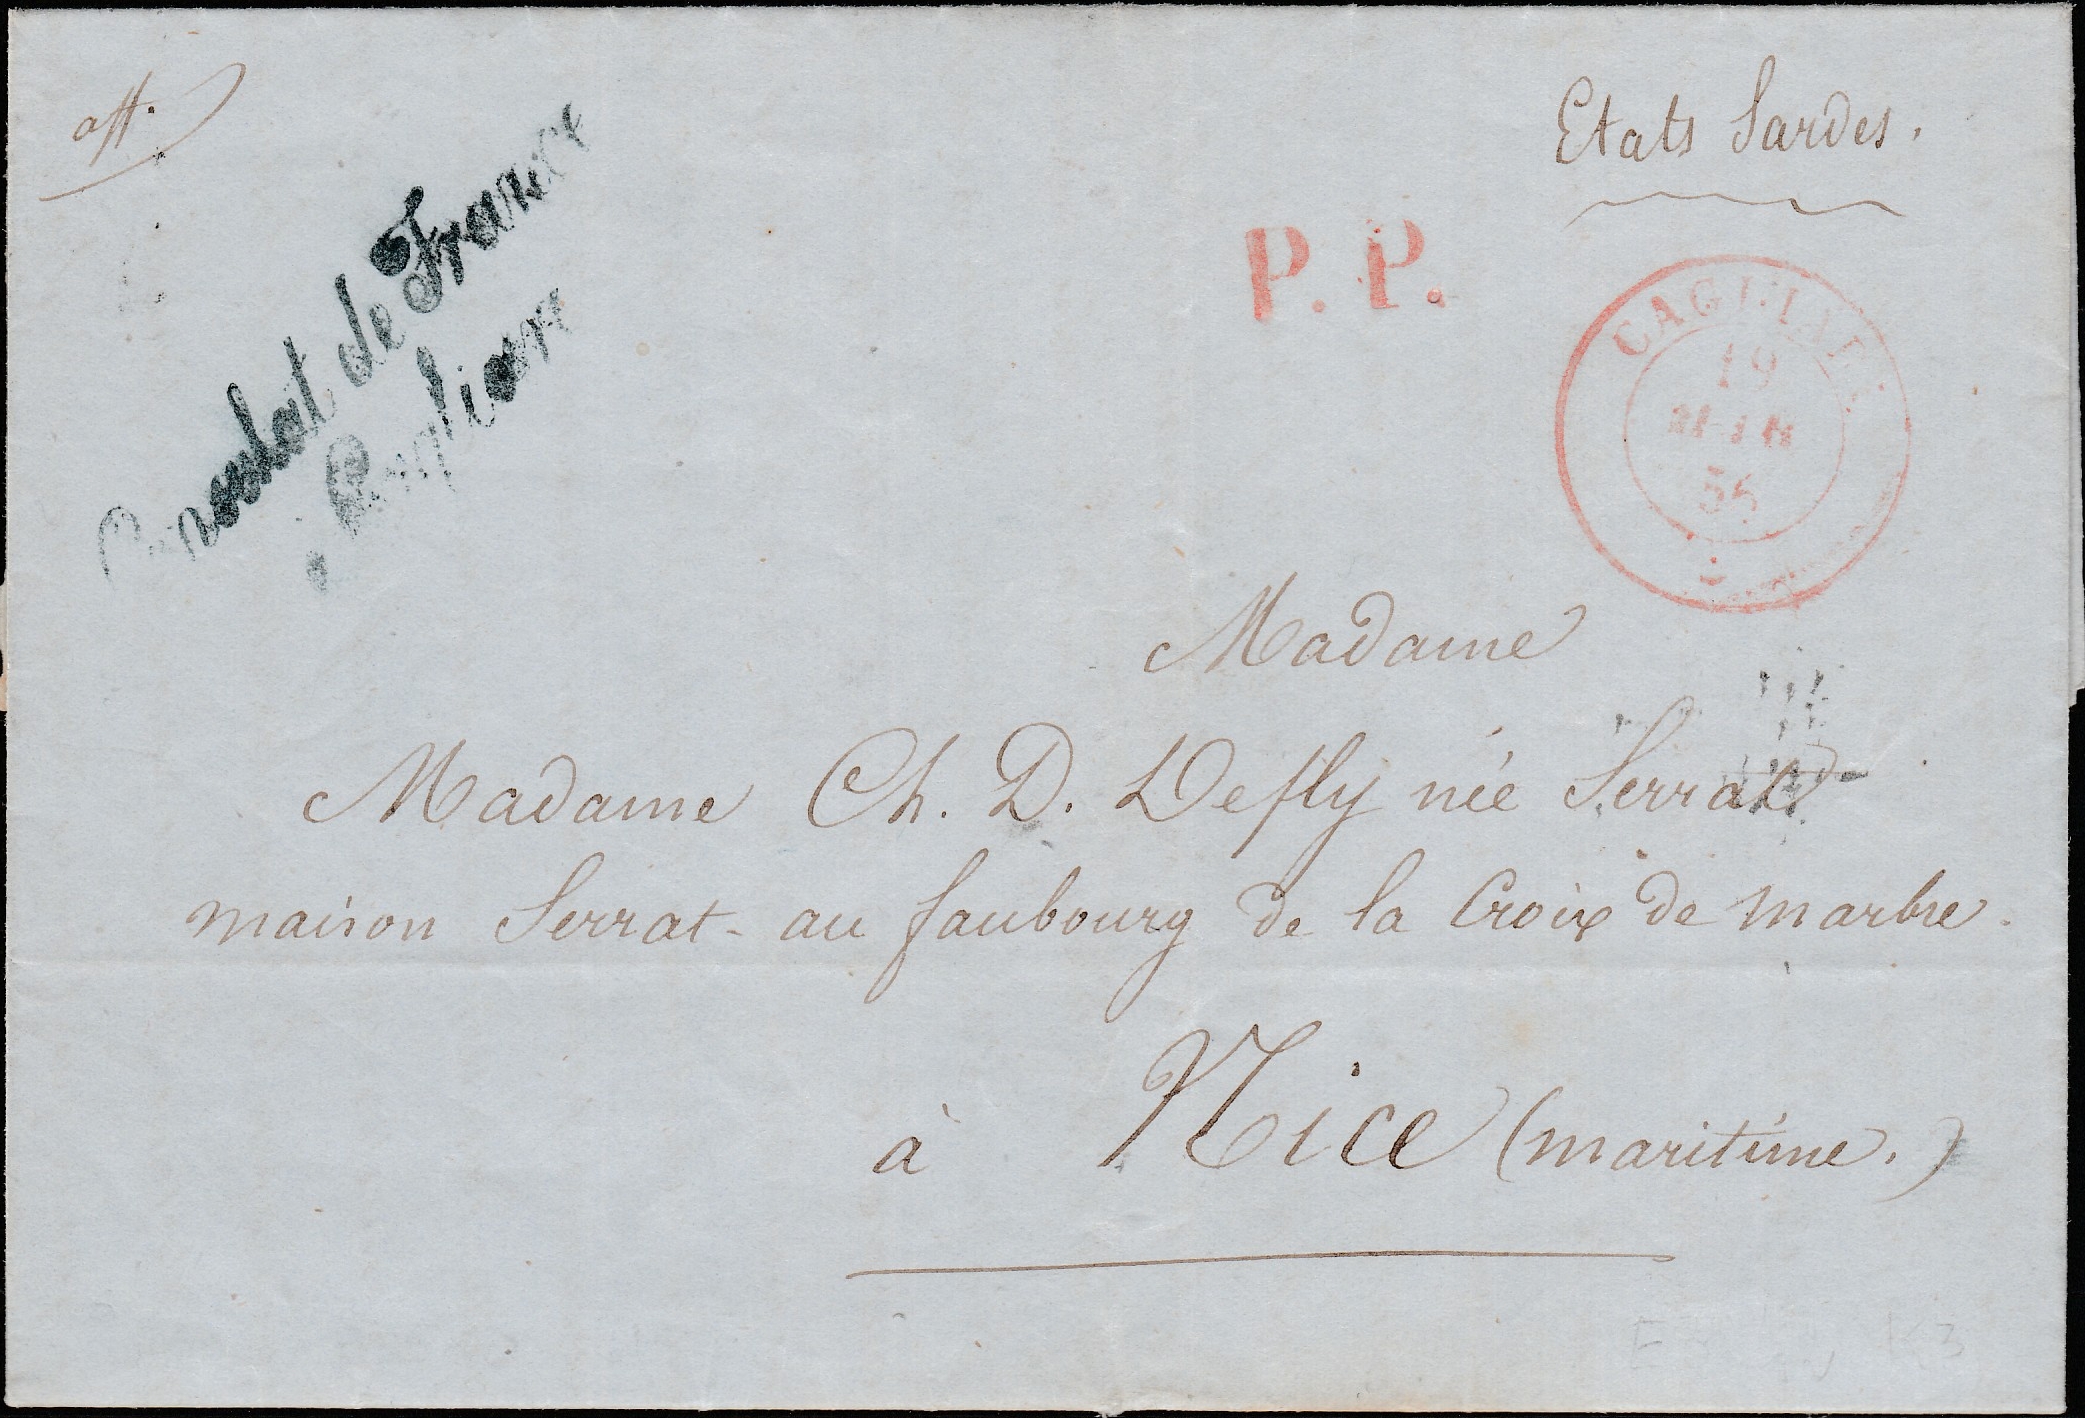 aff.
Etats Sardes.
Consulat de France
Cagliari
P. P.
CAGLIARI
19
56
Madame
Madame Ch. D. Defly née Serrat
maison Serrat - au faubourg de la Croix de marbre.
à Nice (maritime.)